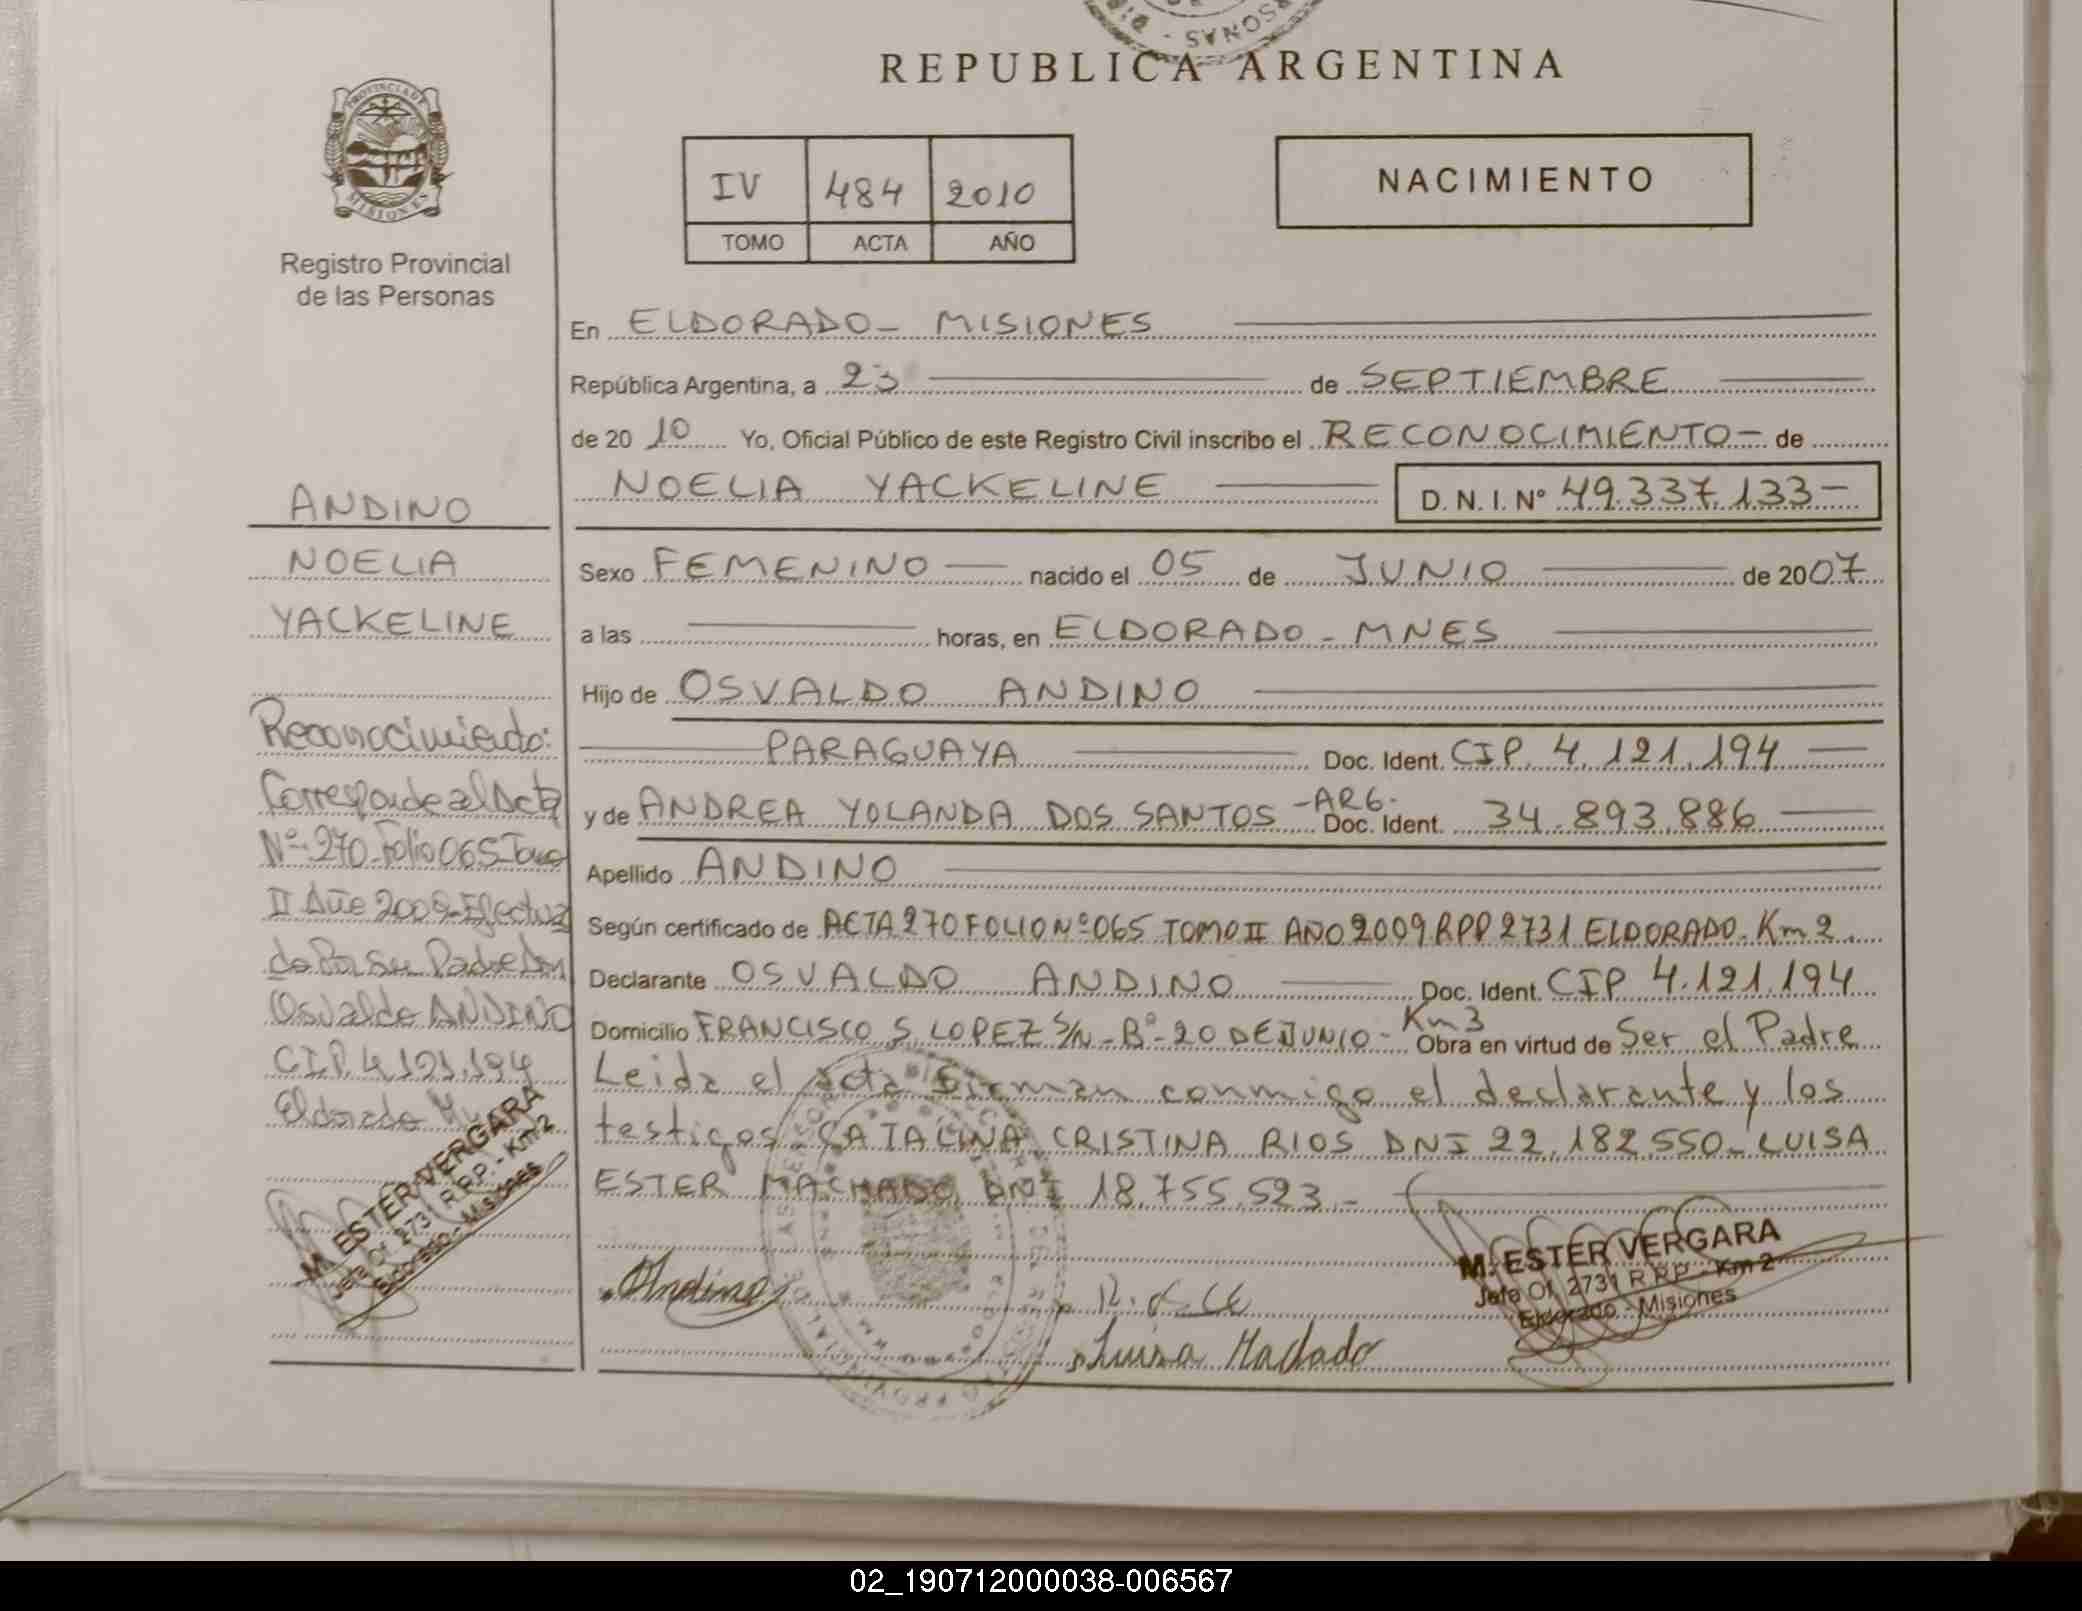 REPUBLICA ARGENTINA
PROVINCIA DE
MISIONES
Registro Provincial
de las Personas
IV 484 2010
TOMO ACTA AÑO
NACIMIENTO
En ELDORADO - MISIONES
República Argentina, a 23 de SEPTIEMBRE
de 2010 Yo, Oficial Público de este Registro Civil inscribo el RECONOCIMIENTO - de
NOELIA YACKELINE D. N. I. Nº 49.337.133-
Sexo FEMENINO nacido el 05 de JUNIO de 2007
a las horas, en ELDORADO - MNES
Hijo de OSVALDO ANDINO
PARAGUAYA Doc. Ident. CIP. 4.121.194
y de ANDREA YOLANDA DOS SANTOS - ARG. Doc. Ident. 34.893.886
Apellido ANDINO
Según certificado de ACTA 270 FOLIO Nº 065 TOMO II AÑO 2009 RPP 2731 ELDORADO. Km 2.
Declarante OSVALDO ANDINO Doc. Ident. CIP 4.121.194
Domicilio FRANCISCO S. LOPEZ S/N - Bº - 20 DE JUNIO - Km 3 Obra en virtud de Ser el Padre
Leida el acta firman conmigo el declarante y los
testigos CATALINA CRISTINA RIOS DNI 22.182.550 - LUISA
ESTER MACHADO DNI 18.755.523 -
Andino
Luisa Machado
M. ESTER VERGARA
Jefe Of. 2731 R.P.P. - Km 2
Eldorado - Misiones
ANDINO
NOELIA
YACKELINE
Reconocimiento:
Corresponde al Acta
Nº 270 - Folio 065 - Tomo
II Año 2009 - Efectua
do Por su Padre Don
Osvaldo ANDINO
C.I.P. 4.121.194
Eldorado
M. ESTER VERGARA
Jefe Of. 2731 R.P.P. - Km 2
Eldorado - Misiones
02_190712000038-006567